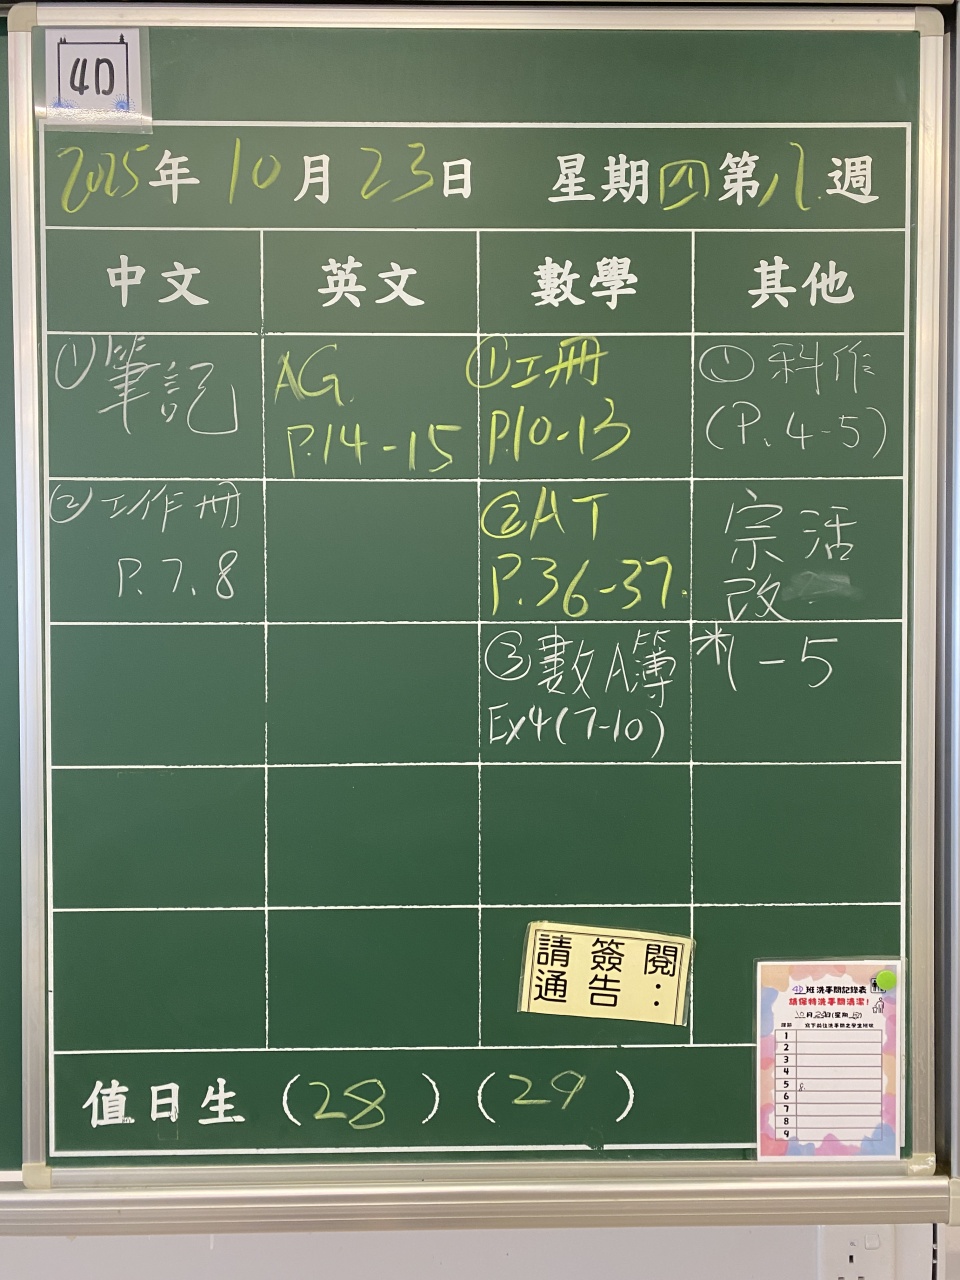 4D
2025年10月23日 星期四第八週
中文 英文 數學 其他
①筆記
②工作冊
P.7.8
AG
P.14-15
①工冊
P.10-13
②AT
P.36-37.
③數A簿
Ex4(7-10)
①科作
(P.4-5)
宗活
改
*1-5
請簽閱
通告:
值日生(28)(29)
4D班洗手間記錄表
請保持洗手間清潔!
課節
1
2
3
4
5 8.
6
7
8
9